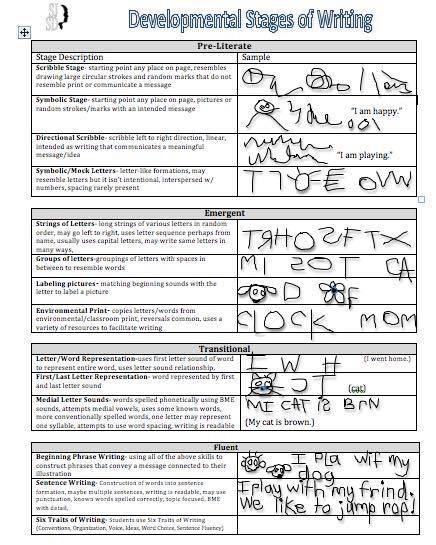 Developmental Stages of Writing
Pre-Literate
Stage Description Sample
Scribble Stage- starting point any place on page, resembles
drawing large circular strokes and random marks that do not
resemble print or communicate a message
Symbolic Stage- starting point any place on page, pictures or
random strokes/marks with an intended message
"I am happy."
Directional Scribble- scribble left to right direction, linear,
intended as writing that communicates a meaningful
message/idea
"I am playing."
Symbolic/Mock Letters- letter-like formations, may
resemble letters but it isn't intentional, interspersed w/
numbers, spacing rarely present
Emergent
Strings of Letters- long strings of various letters in random
order, may go left to right, uses letter sequence perhaps from
name, usually uses capital letters, may write same letters in
many ways,
Groups of letters-groupings of letters with spaces in
between to resemble words
MI SOT CA
Labeling pictures- matching beginning sounds with the
letter to label a picture
D F
Environmental Print- copies letters/words from
environmental/classroom print, reversals common, uses a
variety of resources to facilitate writing
CLOCK MOM
Transitional
Letter/Word Representation-uses first letter sound of word
to represent entire word, uses letter sound relationship,
I W H (I went home.)
First/Last Letter Representation- word represented by first
and last letter sound
(cat)
Medial Letter Sounds- words spelled phonetically using BME
sounds, attempts medial vowels, uses some known words,
more conventionally spelled words, one letter may represent
one syllable, attempts to use word spacing, writing is readable
MI CAT IS BRN
(My cat is brown.)
Fluent
Beginning Phrase Writing- using all of the above skills to
construct phrases that convey a message connected to their
illustration
I pla wif my
dog
Sentence Writing- Construction of words into sentence
formation, maybe multiple sentences, writing is readable, may use
punctuation, known words spelled correctly, topic focused, BME
with detail,
I play with my frind.
We like to jump rop!
Six Traits of Writing- Students use Six Traits of Writing
(Conventions, Organization, Voice, Ideas, Word Choice, Sentence Fluency)